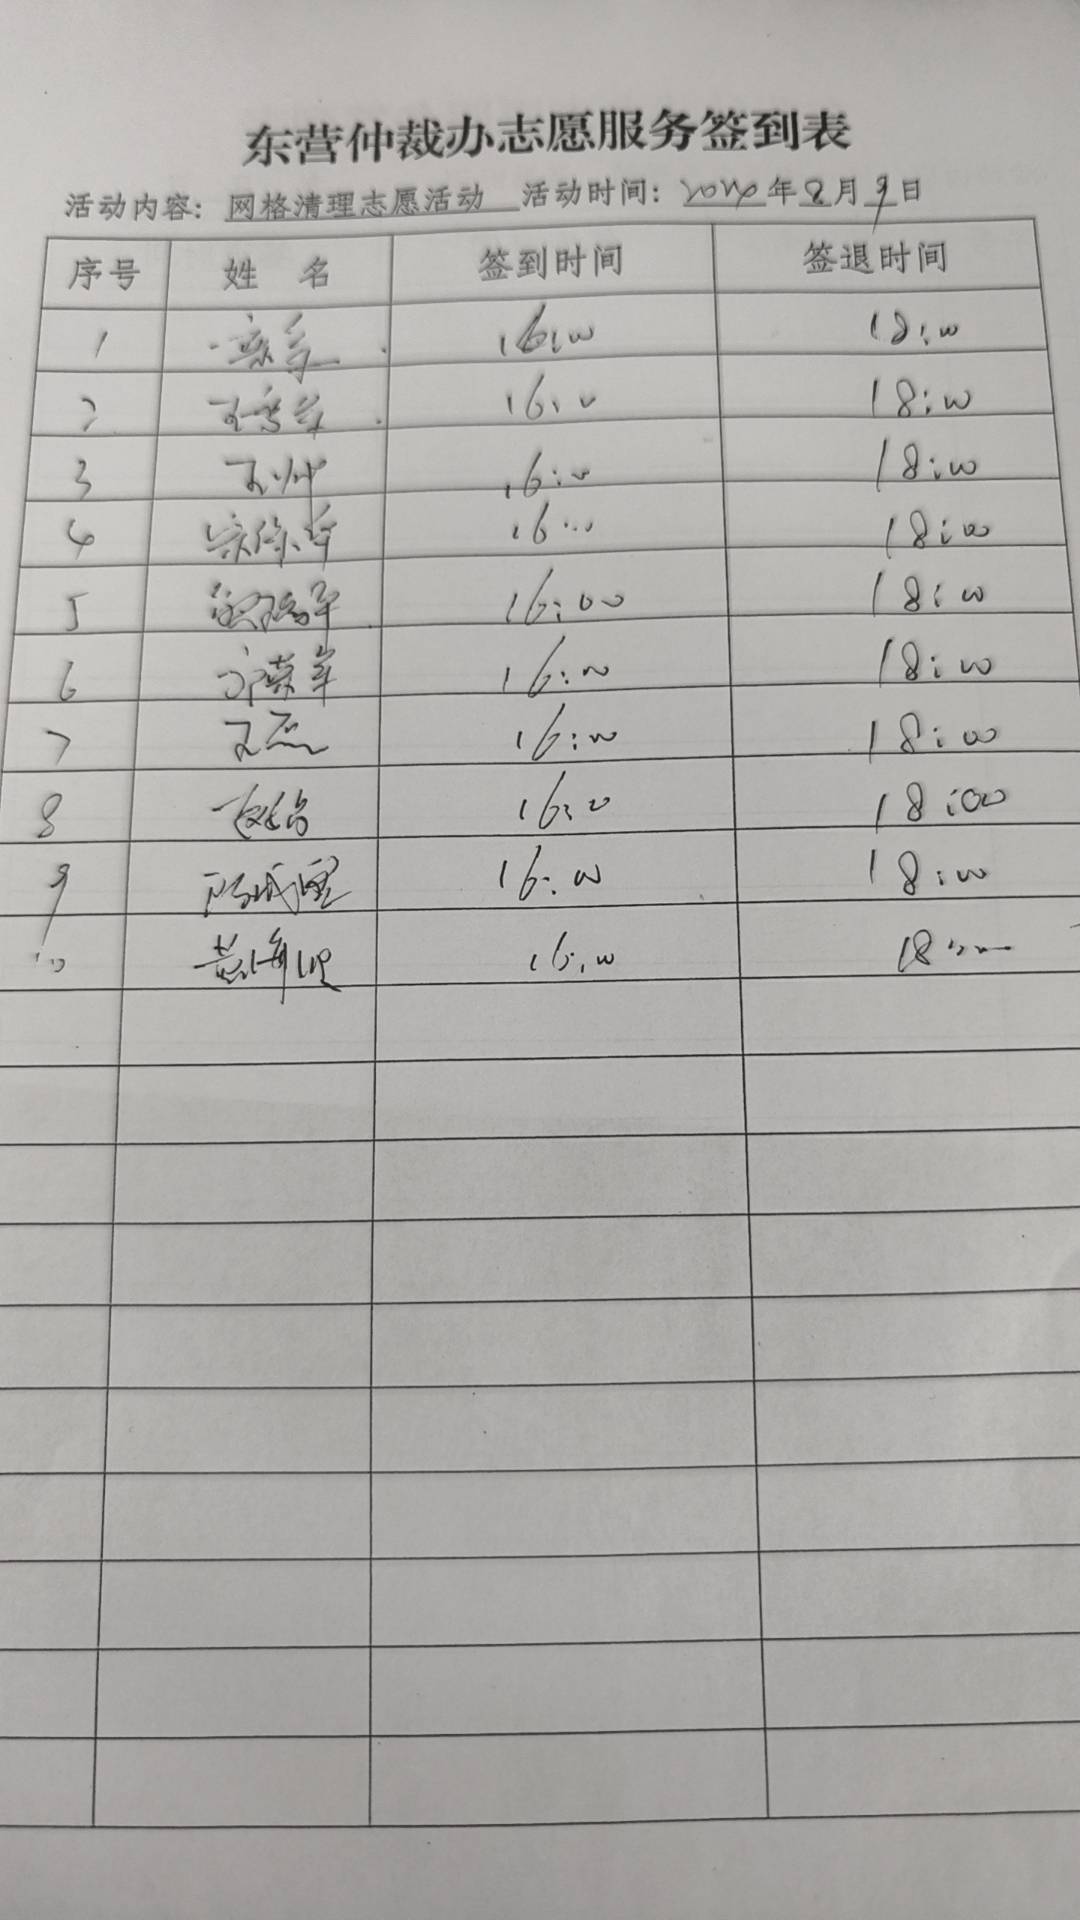 东营仲裁办志愿服务签到表
活动内容: 网格清理志愿活动 活动时间: 2024年8月9日
序号 姓 名 签到时间 签退时间
1 16:00 18:00
2 16:00 18:00
3 王帅 16:00 18:00
4 16:00 18:00
5 16:00 18:00
6 16:00 18:00
7 王磊 16:00 18:00
8 16:00 18:00
9 16:00 18:00
10 16:00 18:00